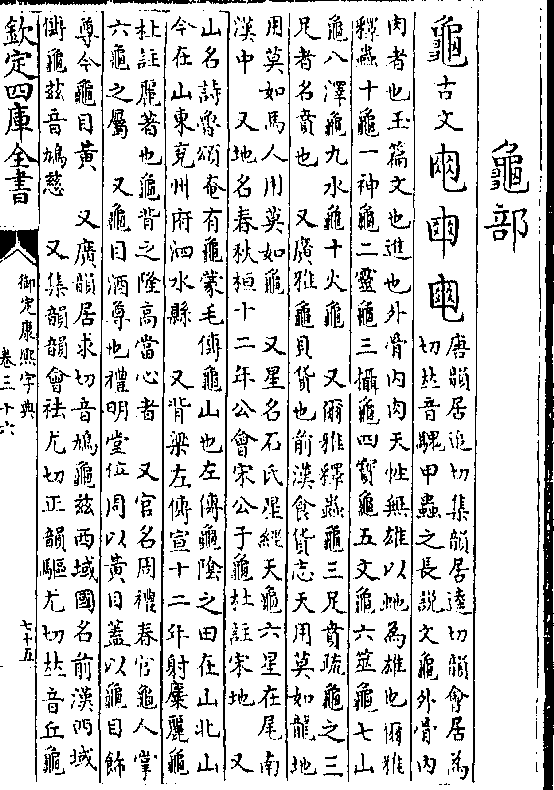 龜部
龜古文𠁴𤰺𪓑唐韻居追切集韻居逵切韻會居為
切𠀤音騩甲蟲之長說文龜外骨內
肉者也玉篇文也進也外骨內肉天性無雄以虵為雄也爾雅
釋蟲十龜一神龜二靈龜三攝龜四寶龜五文龜六筮龜七山
龜八澤龜九水龜十火龜　又爾雅釋蟲龜三足賁疏龜之三
足者名賁也　又廣雅龜貝貨也前漢食貨志天用莫如龍地
用莫如馬人用莫如龜　又星名石氏星經天龜六星在尾南
漢中　又地名春秋桓十二年公會宋公于龜杜註宋地　又
山名詩魯頌奄有龜蒙毛傳龜山也左傳龜陰之田在山北山
今在山東兗州府泗水縣　又背梁左傳宣十二年射麋麗龜
杜註麗著也龜背之隆高當心者　又官名周禮春官龜人掌
六龜之屬　又龜目酒尊也禮明堂位周以黃目蓋以龜目飾
尊今龜目黃　又廣韻居求切音鳩龜兹西域國名前漢西域
傳龜兹音鳩慈　又集韻韻會祛尤切正韻驅尤切𠀤音丘龜
欽定四庫全書
御定康熙字典
卷三十六
七十五